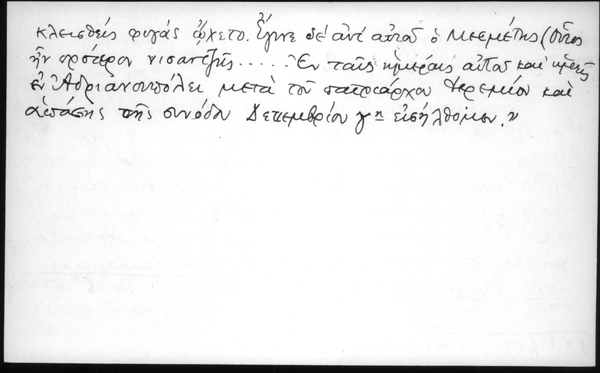 κλεισθείς φυγάς ᾤχετο. Ἔγινε δέ ἀντ' αὐτοῦ ὁ Μεεμέτης (Οὗτος
ἦν πρότερον νισαντζῆς ..... Ἐν ταῖς ἡμέραις αὐτοῦ καί ἡμεῖς
ἐν Ἀδριανουπόλει μετά τοῦ πατριάρχου Ἱερεμίου καί
ἁπάσης τῆς συνόδου Δεκεμβρίου γῃ εἰσήλθομεν."